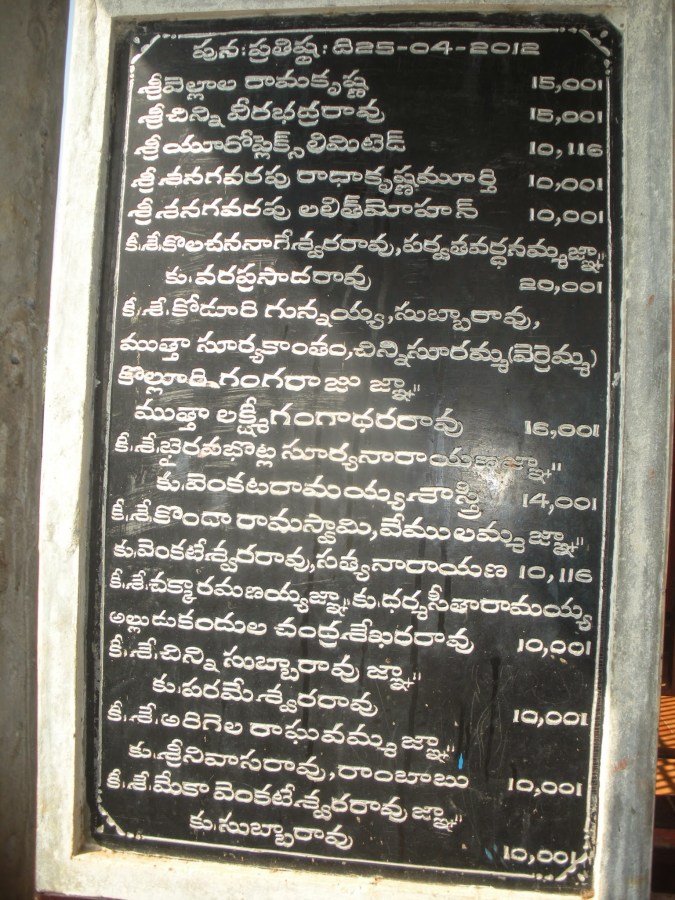 పునఃప్రతిష్ట: ది25-04-2012
శ్రీ వెల్లాల రామకృష్ణ 15,001
శ్రీ చిన్ని వీరభద్రరావు 15,001
శ్రీ యూరోప్లెక్స్ లిమిటెడ్ 10,116
శ్రీ శనగవరపు రాధాకృష్ణమూర్తి 10,001
శ్రీ శనగవరపు లలిత్‌మోహన్ 10,001
కీ.శే.కొలచననాగేశ్వరరావు,పర్వతవర్ధనమ్మజ్ఞా॥
కు॥వరప్రసాదరావు 20,001
కీ.శే.కోడూరి గున్నయ్య,సుబ్బారావు,
ముత్తా సూర్యకాంతం,చిన్నిసూరమ్మ(వెర్రెమ్మ)
కొల్లూడి గంగరాజు జ్ఞా॥
ముత్తా లక్ష్మీగంగాధరరావు 16,001
కీ.శే.భైరవభొట్ల సూర్యనారాయణజ్ఞా॥
కు॥వెంకటరామయ్యశాస్త్రి 14,001
కీ.శే.కొండా రామస్వామి,వేములమ్మజ్ఞా॥
కు॥వెంకటేశ్వరరావు,సత్యనారాయణ 10,116
కీ.శే.చక్కారమణయ్యజ్ఞా॥కు॥ధర్మసీతారామయ్య
అల్లుడుకందుల చంద్రశేఖరరావు 10,001
కీ.శే.చిన్ని సుబ్బారావు జ్ఞా॥
కు॥పరమేశ్వరరావు 10,001
కీ.శే.అరిగెల రాఘవమ్మ జ్ఞా॥
కు॥శ్రీనివాసరావు,రాంబాబు 10,001
కీ.శే.మేకా వెంకటేశ్వరరావు జ్ఞా॥
కు॥సుబ్బారావు 10,001